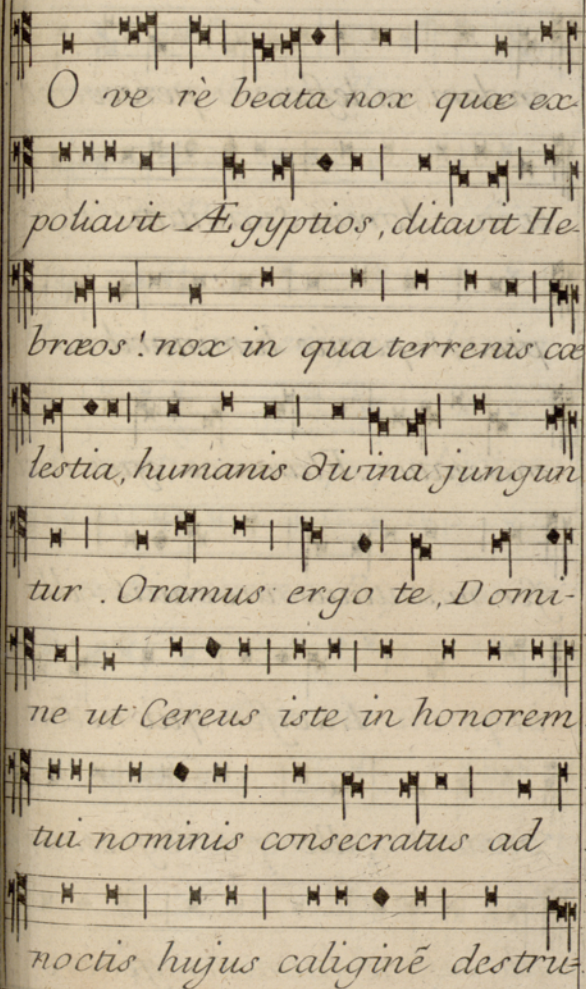 O ve rè beata nox quæ ex-
poliavit Ægyptios, ditavit He-
bræos! nox in qua terrenis cœ
lestia, humanis divina jungun
tur. Oramus ergo te, Domi-
ne ut Cereus iste in honorem
tui nominis consecratus ad
noctis hujus caliginẽ destru=